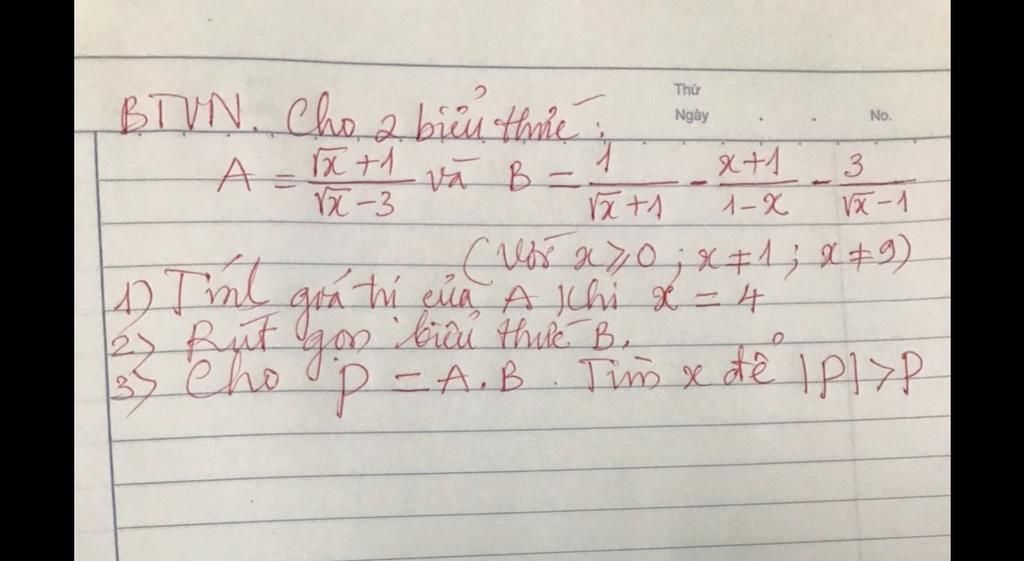 Thứ
Ngày . . No.
BTVN. Cho 2 biểu thức :
A = (√x + 1)/(√x - 3) và B = 1/(√x + 1) - (x + 1)/(1 - x) - 3/(√x - 1)
(Với x ⩾ 0 ; x ≠ 1 ; x ≠ 9)
1) Tính giá trị của A khi x = 4
2) Rút gọn biểu thức B.
3) Cho P = A.B. Tìm x để |P| > P